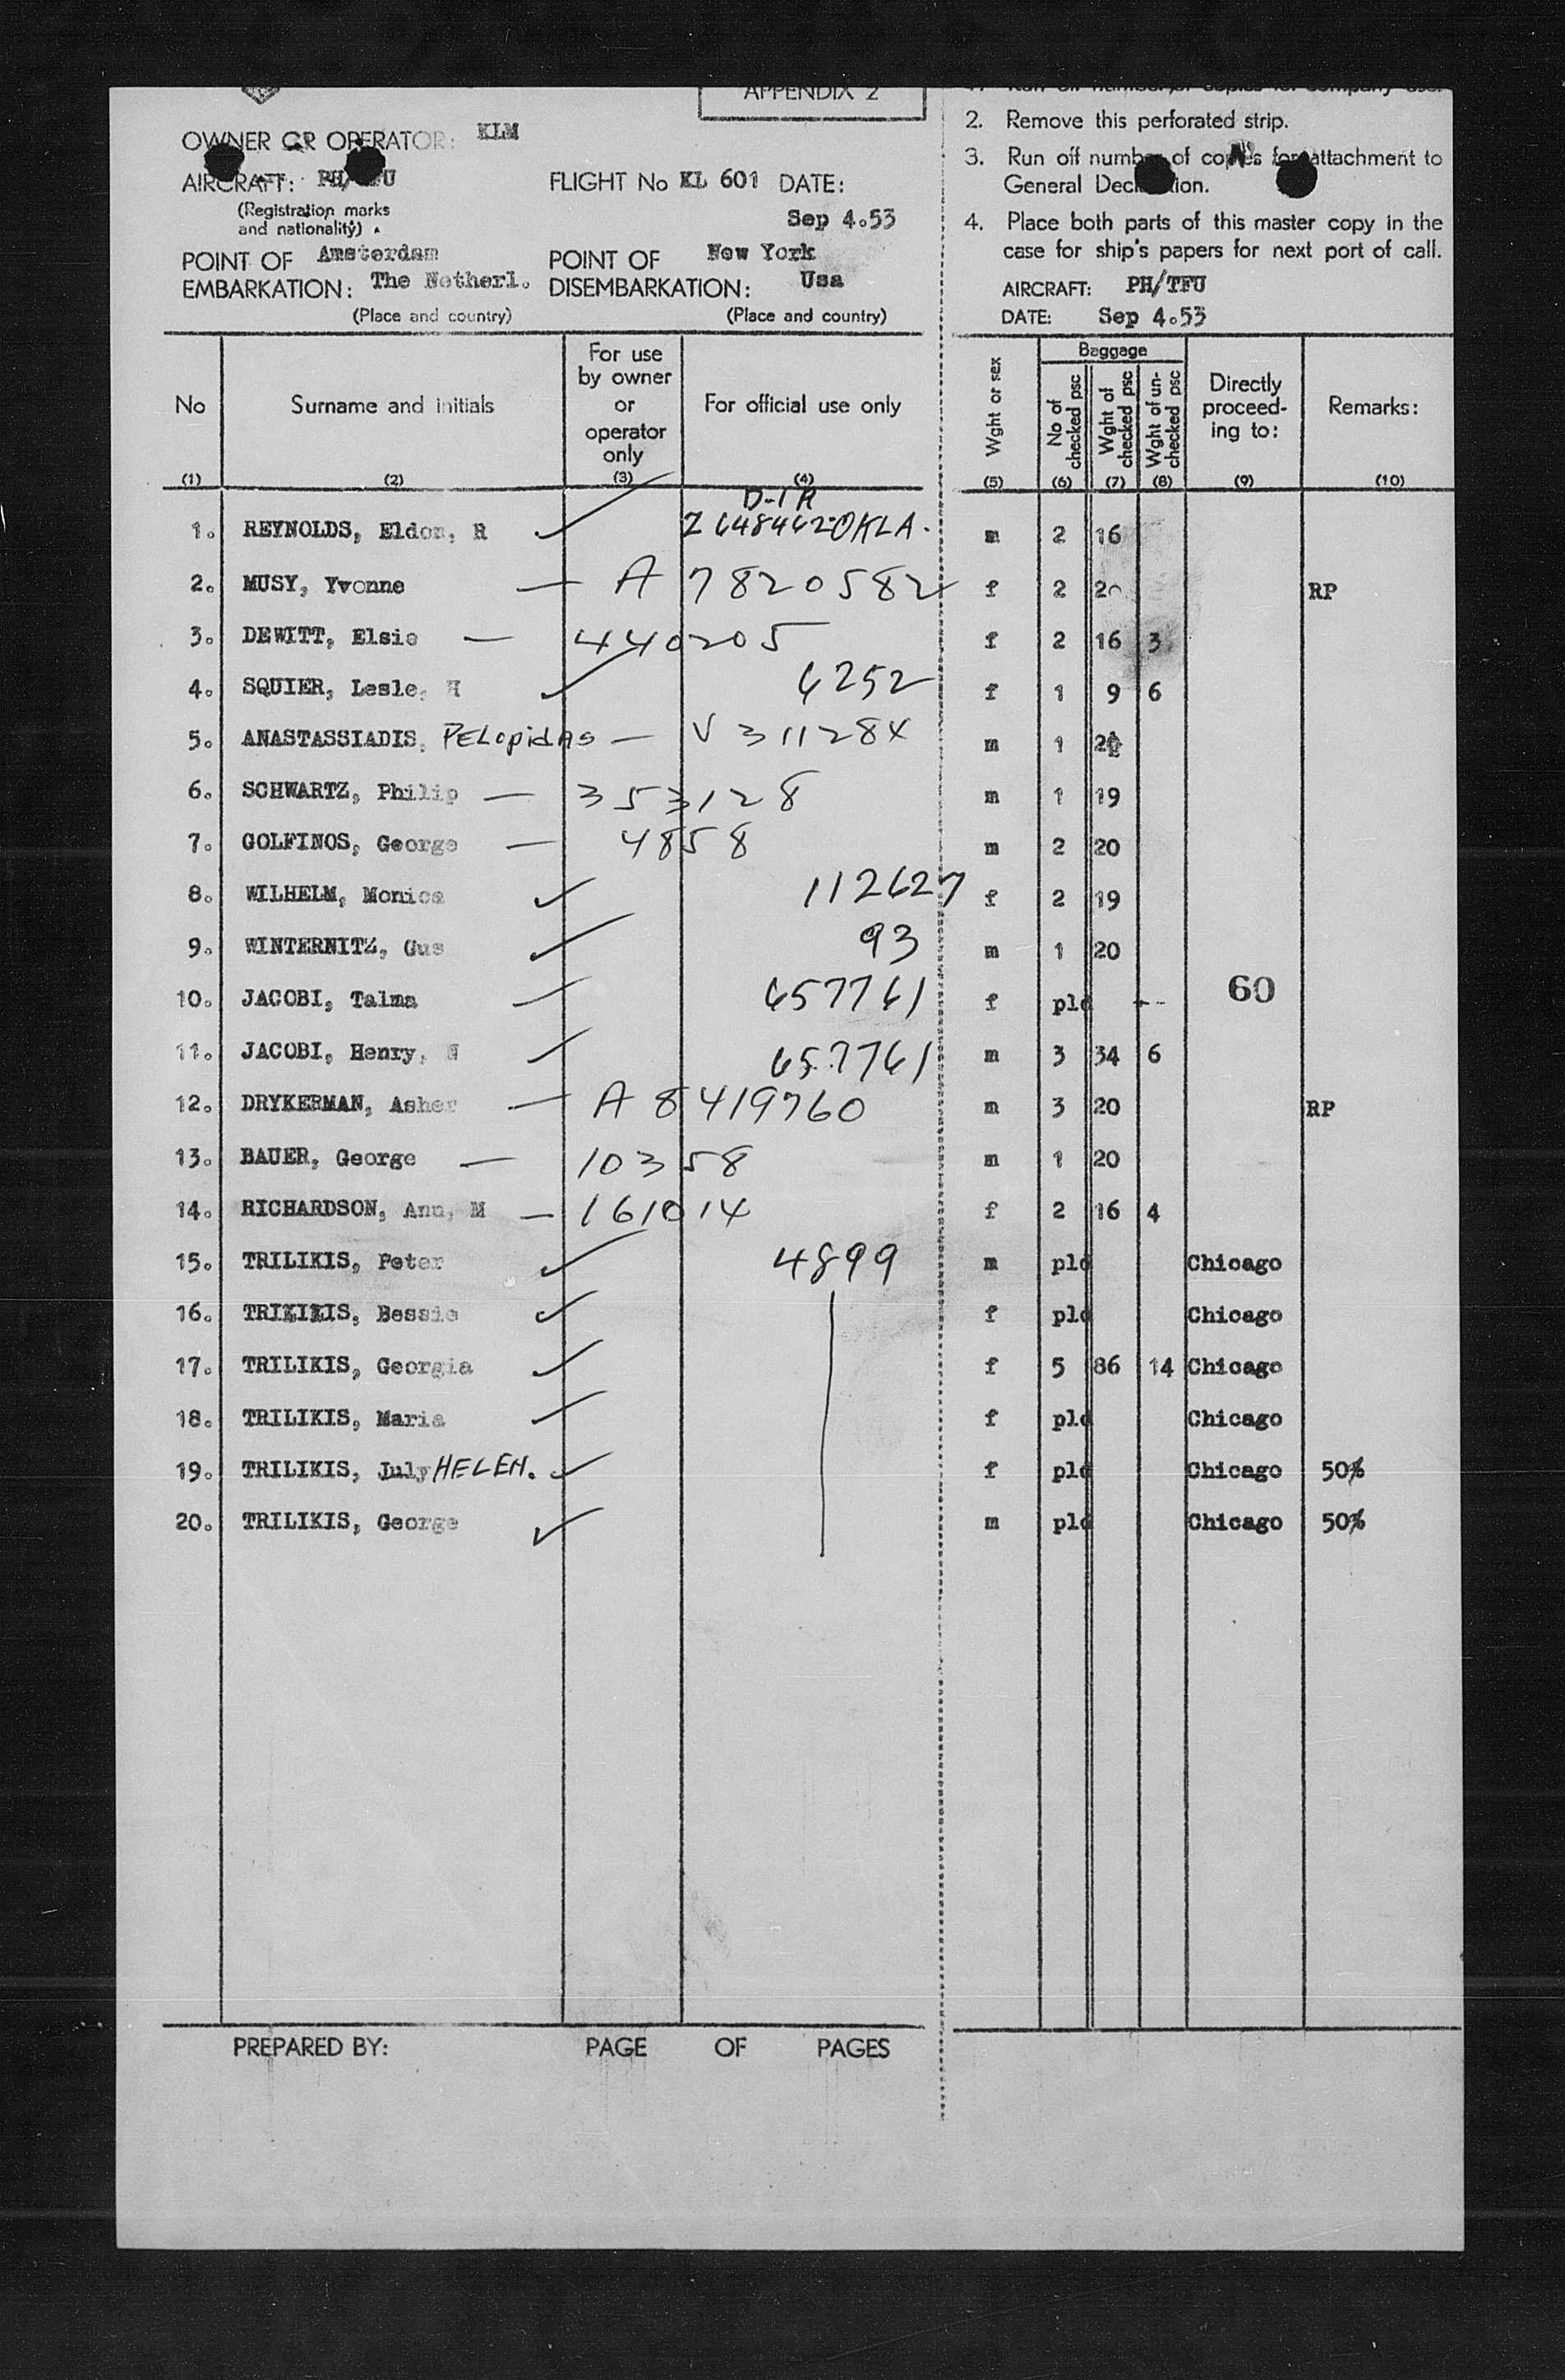 APPENDIX 2
OWNER OR OPERATOR: KLM
AIRCRAFT: PH/TFU FLIGHT No KL 601 DATE:
(Registration marks and nationality) Sep 4.53
POINT OF EMBARKATION: Amsterdam The Netherl. POINT OF DISEMBARKATION: New York Usa
(Place and country) (Place and country)
1. Run off number of copies for company use.
2. Remove this perforated strip.
3. Run off number of copies for attachment to
General Declaration.
4. Place both parts of this master copy in the
case for ship's papers for next port of call.
AIRCRAFT: PH/TFU
DATE: Sep 4.53
No Surname and initials For use by owner or operator only For official use only Wght or sex Baggage No of checked psc Wght of checked psc Wght of un-checked psc Directly proceed-ing to: Remarks:
(1) (2) (3) (4) (5) (6) (7) (8) (9) (10)
D-1A
1. REYNOLDS, Eldon, R Z648462-OKLA. m 2 16
2. MUSY, Yvonne — A 7820582 f 2 20 RP
3. DEWITT, Elsie — 440205 f 2 16 3
4. SQUIER, Lesle, H 6252 f 1 9 6
5. ANASTASSIADIS, PELopidAs — V 311284 m 1 20
6. SCHWARTZ, Philip — 353128 m 1 19
7. GOLFINOS, George — 4858 m 2 20
8. WILHELM, Monica 112627 f 2 19
9. WINTERNITZ, Gus 93 m 1 20
10. JACOBI, Talma 657761 f pld -- 60
11. JACOBI, Henry, 657761 m 3 34 6
12. DRYKERMAN, Asher — A 8419760 m 3 20 RP
13. BAUER, George — 10358 m 1 20
14. RICHARDSON, Ann, M — 161014 f 2 16 4
15. TRILIKIS, Peter 4899 m pld Chicago
16. TRILIKIS, Bessie f pld Chicago
17. TRILIKIS, Georgia f 5 86 14 Chicago
18. TRILIKIS, Maria f pld Chicago
19. TRILIKIS, July HELEN. f pld Chicago 50%
20. TRILIKIS, George m pld Chicago 50%
PREPARED BY: PAGE OF PAGES